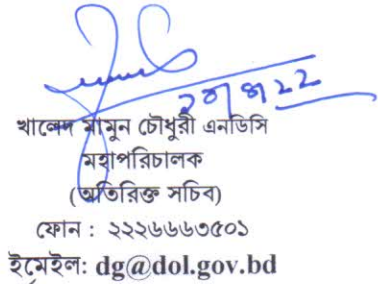 খালেদ মামুন চৌধুরী এনডিসি
মহাপরিচালক
(অতিরিক্ত সচিব)
ফোন : ২২২৬৬৬৩৫০১
ইমেইল: dg@dol.gov.bd